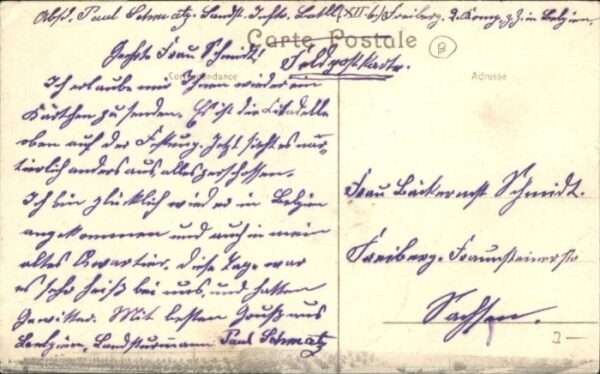 Abs. Paul Schmatz. Landst. Inftr. Batll. (XII 6.) Freiberg. 2. Komp. z. Z. in Belgien.
Carte Postale
Feldpostkarte.
Correspondance
Adresse
Geehrte Frau Schmidt!
Ich erlaube mir Ihnen wieder ein
Kärtchen zu senden. Es ist die Citadelle
oben auf der Festung. Jetzt sieht es na-
türlich anders aus, alles zerschossen.
Ich bin glücklich wieder in Belgien
angekommen und auch in mein
altes Quartier. Diese Tage war
es sehr heiß bei uns, und hatten
Gewitter. Mit besten Gruß aus
Belgien, Landsturmann Paul Schmatz
Frau Bäckermst Schmidt.
Freiberg. Frauensteinerstr
Sachsen.